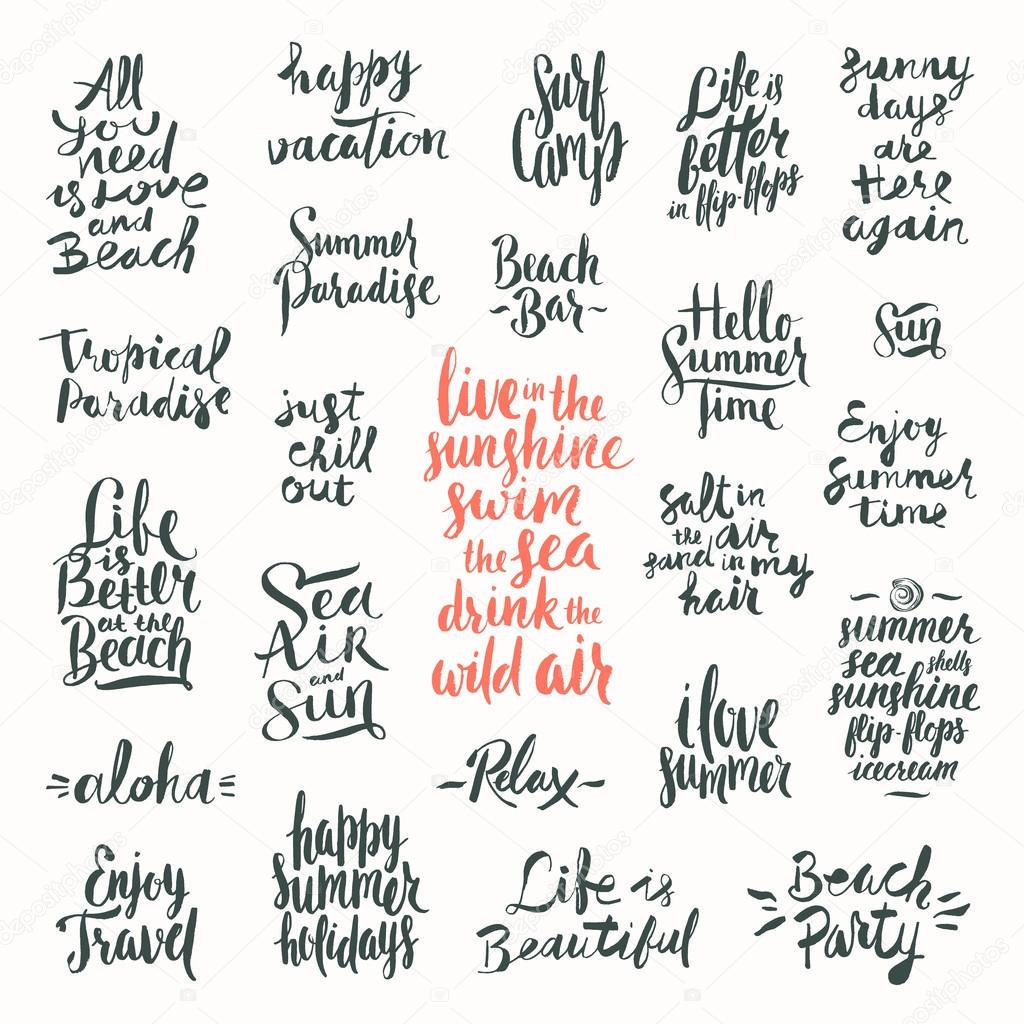 All
you
need
is Love
and
Beach
happy
vacation
Surf
Camp
Life is
better
in flip-flops
sunny
days
are
Here
again
Summer
Paradise
Beach
~Bar~
Hello
Summer
Time
Sun
Tropical
Paradise
just
chill
out
live in the
sunshine
swim
the sea
drink the
wild air
Enjoy
Summer
time
Life
is
Better
at the
Beach
Sea
Air
and
Sun
salt in
the air
sand in my
hair
summer
sea shells
sunshine
flip-flops
icecream
i love
summer
aloha
~Relax~
Enjoy
Travel
happy
summer
holidays
Life is
Beautiful
Beach
Party
depositphotos